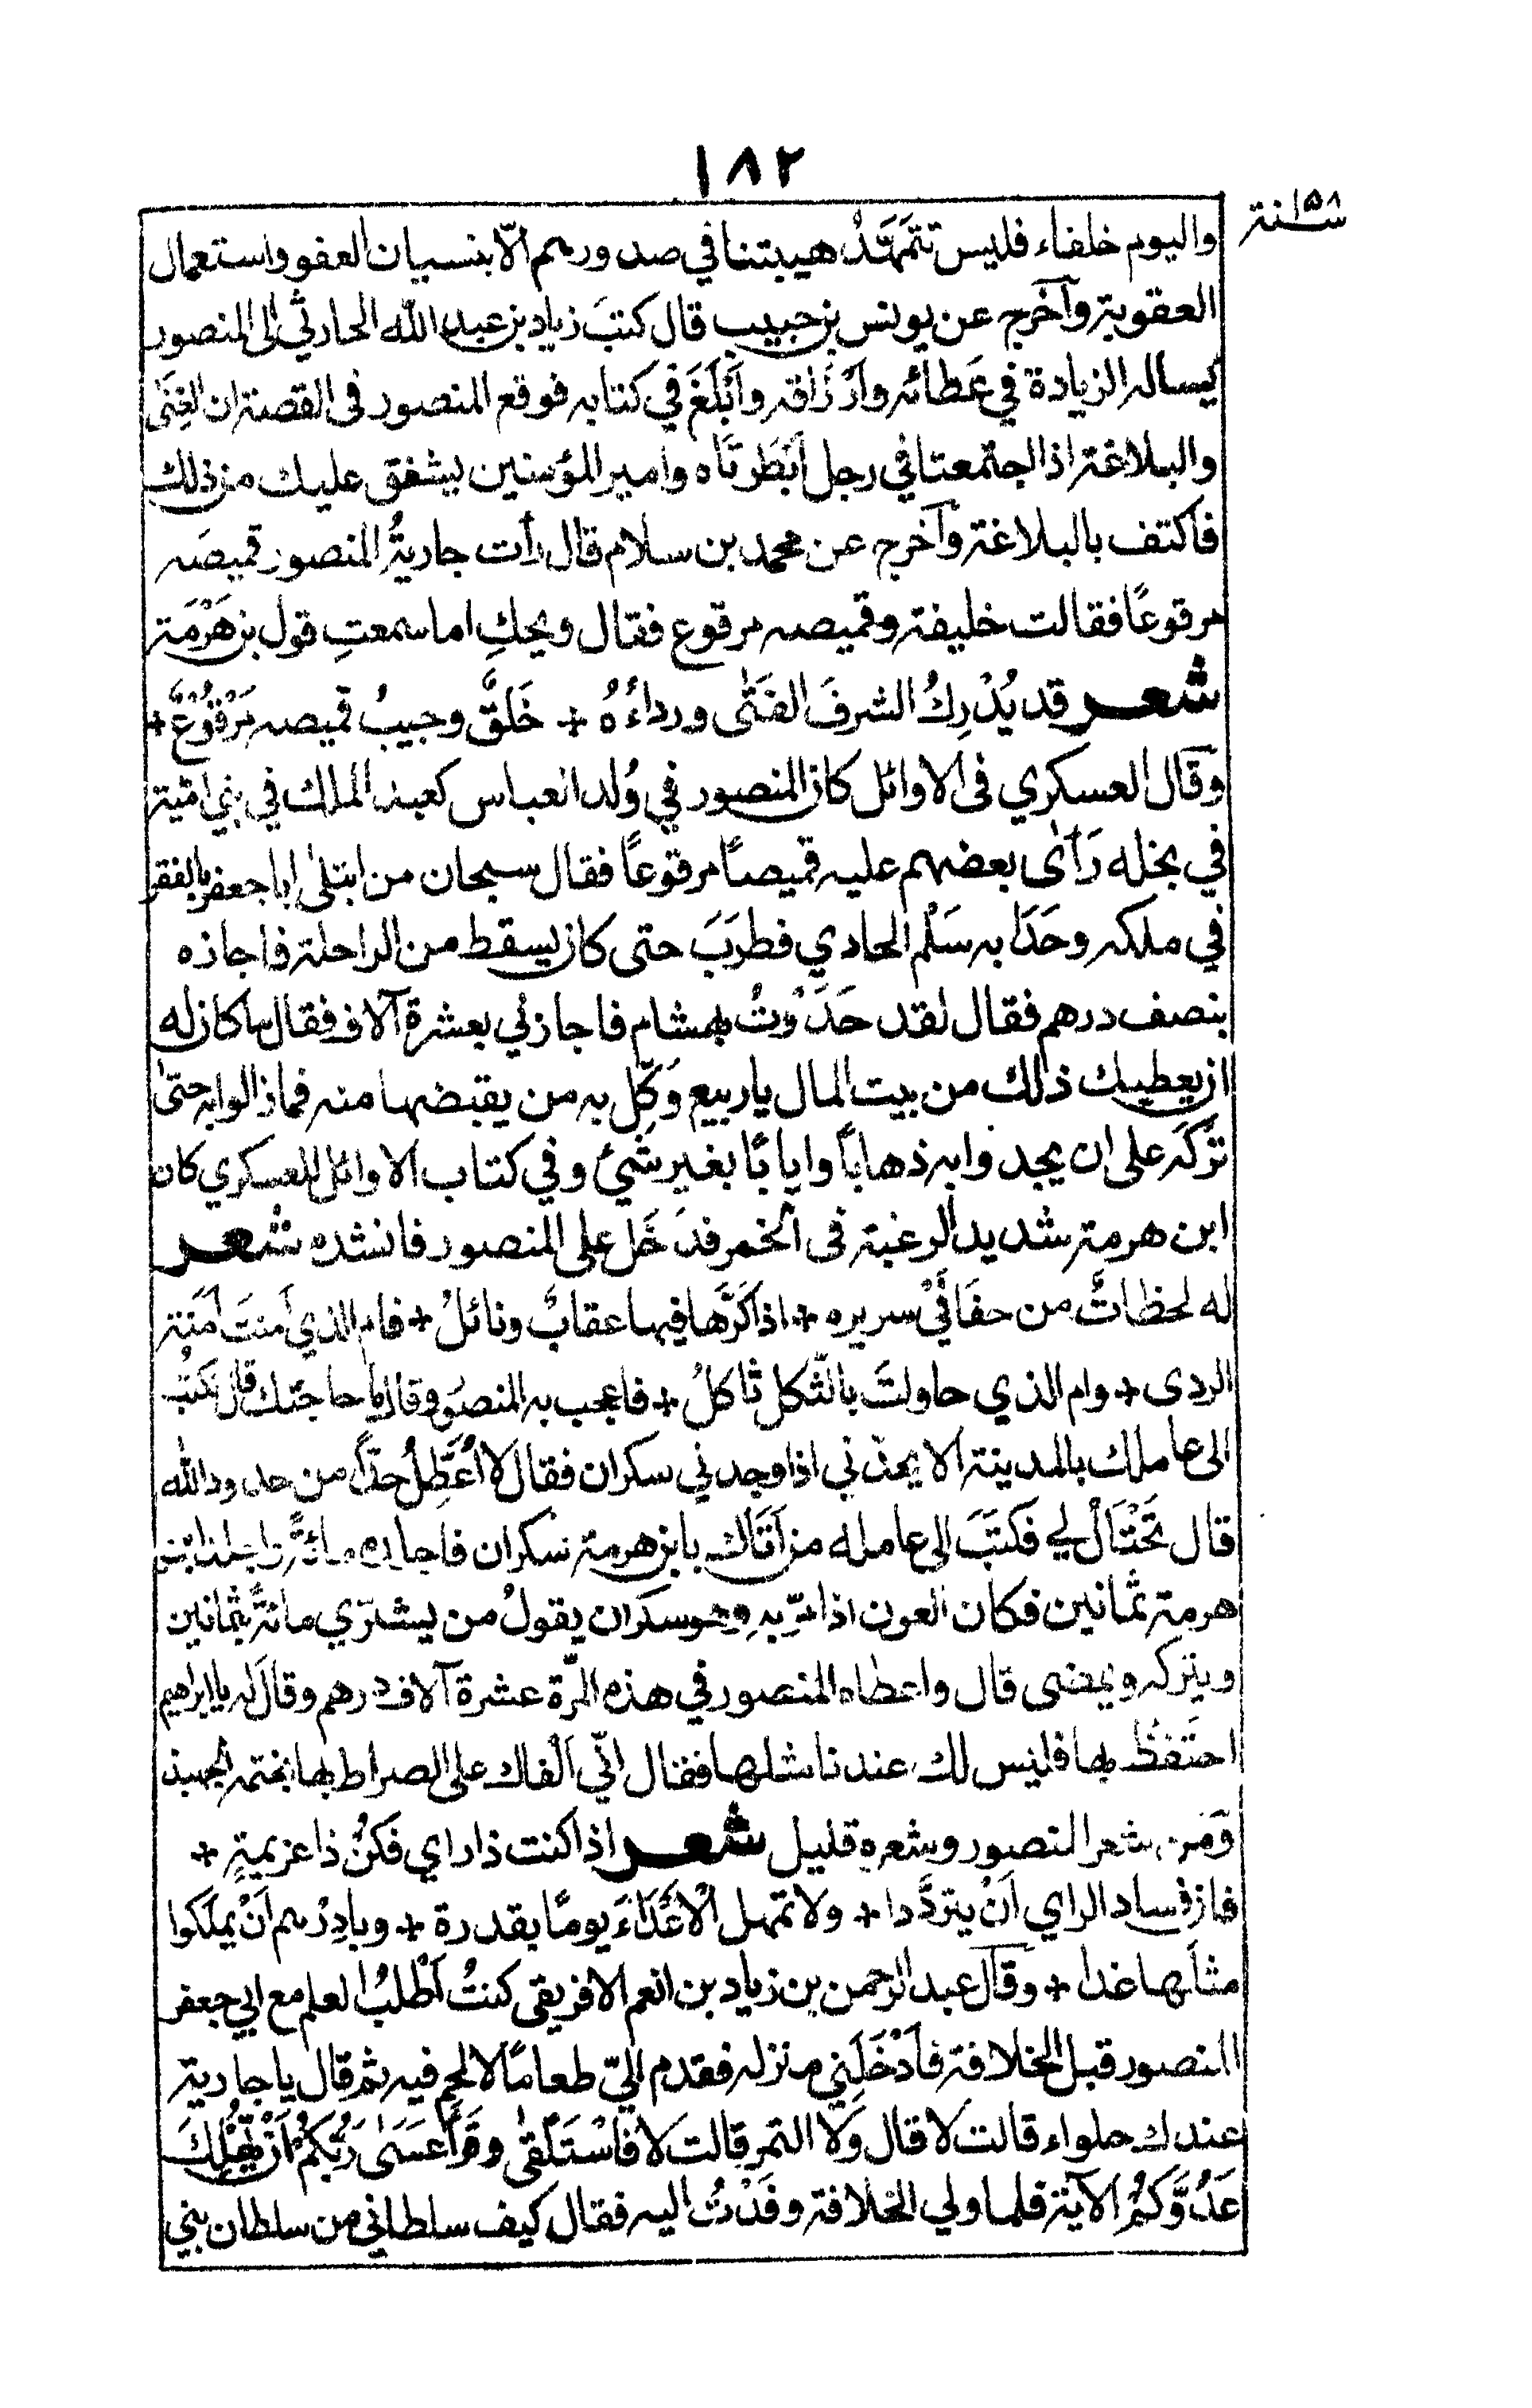 ١٨٢
سنة ١٥٨
واليوم خلفاء فليس تتمَهَّدُ هيبتنا في صدورهم الّا بنسيان العفو واستعمال
العقوبة وآخرج عن يونس بن حبيب قال كتبَ زياد بن عبد الله الحارثي الى المنصور
يساله الزيادة في عَطائه وأرْزاقه وأبْلَغَ في كتابه فوقع المنصور فى القصة ان الغِنَى
والبلاغة اذا اجتمعتا في رجل أبْطَرتاه وامير المؤمنين يشفق عليك من ذلك
فاكتف بالبلاغة وآخرج عن محمد بن سلام قال رأت جاريةُ المنصور قميصَه
مرقوعًا فقالت خليفة وقميصه مرقوع فقال ويحكِ اما سمعتِ قول بن هَرْمَة
شعر قد يُدْرِكُ الشرفَ الفَتٰى ورداءُهُ + خَلَقٌ وجيبُ قميصه مَرْقُوْعٌ +
وقال العسكري فى الاوائل كان المنصور في وُلد العباس كعبد الملك في بني امَية
في بخله رَأىٰ بعضهم عليه قميصاً مرقوعًا فقال سبحان من ابتلىٰ ابا جعفر بالفقر
في ملكه وحَدَا به سَلْم الحادي فطرَبَ حتى كاز يسقط من الراحلة فاجازه
بنصف درهم فقال لقد حَدَوْتُ بهشام فاجازني بعشرة آلاف فقال ما كان له
ان يعطيك ذلك من بيت المال يا ربيع وَكِّل به من يقبضها منه فمازالوا به حتىٰ
تركه على ان يحدوا به ذهابًا وايابًا بغير شيْ وفي كتاب الاوائل للعسكري كان
ابن هرمة شديد الرغبة فى الخمر فدَخَل على المنصور فانشده شعر
له لحظاتٌ من حفَافَيْ سريره + اذا كَرَّها فيها عقابٌ ونائلُ + فام الذي أمنتَ أمَنة
الردى + وام الذي حاولتَ بالثّكل ثاكلُ + فاعجب به المنصور وقال ما حاجتك قال تكتُب
الى عاملك بالمدينة الا يحدّني اذا وجدني سكران فقال لا اُعَطِّلُ حدّاً من حدود الله
قال تَحْتَالُ لي فكتَبَ الى عامله من أتَاك بابن هرمة سكران فاجلده مائةً واجلد ابن
هرمة ثمانين فكان العون اذا مرّ بهِ وهو سكران يقولُ من يشترَي مائةً بثمانين
ويتركه ويمضى قال واعطاه المنصور في هذه المرّة عشرة آلاف درهم وقالَ له يا ابراهيم
احتَفظْ بها فليس لك عندنا مثلها فقال انّي ألْقاك على الصراط بها بختمة الجهبذ
وَمن شعر المنصور وشعره قليل شعر اذا كنت ذا راي فَكُنْ ذا عزيمةٍ +
فان فساد الراي اَنْ يتردَّدا + ولا تمهل الْأعْدَاءَ يومًا بقدرة + وبادِرْهم اَنْ يملكوا
مثلَها غدا + وقال عبد الرحمن بن زياد بن انعم الافريقى كنتُ أطْلبُ العلم مع ابي جعفر
المنصور قبل الخلافة فأدْخَلَني منزله فقدم اليّ طعامًا لا لحم فيه ثم قال يا جارية
عندك حلواء قالت لا قال وَلا التمر قالت لا فاسْتَلْقىٰ وقَرَأ عَسَىٰ رَبُّكُمْ أنْ يُّهْلِكَ
عَدُوَّكُمْ الآية فلما ولي الخلافة وفَدْتُ اليه فقال كيف سلطاني من سلطان بني